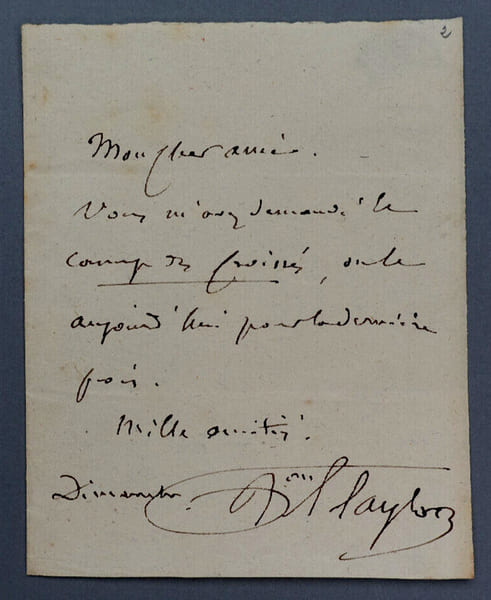 2
Mon cher ami.
Vous m'avez demandé le
camp des Croisés, on le
aujourd'hui pour la dernière
fois.
Mille amitiés.
Dimanche. Bon I Taylor